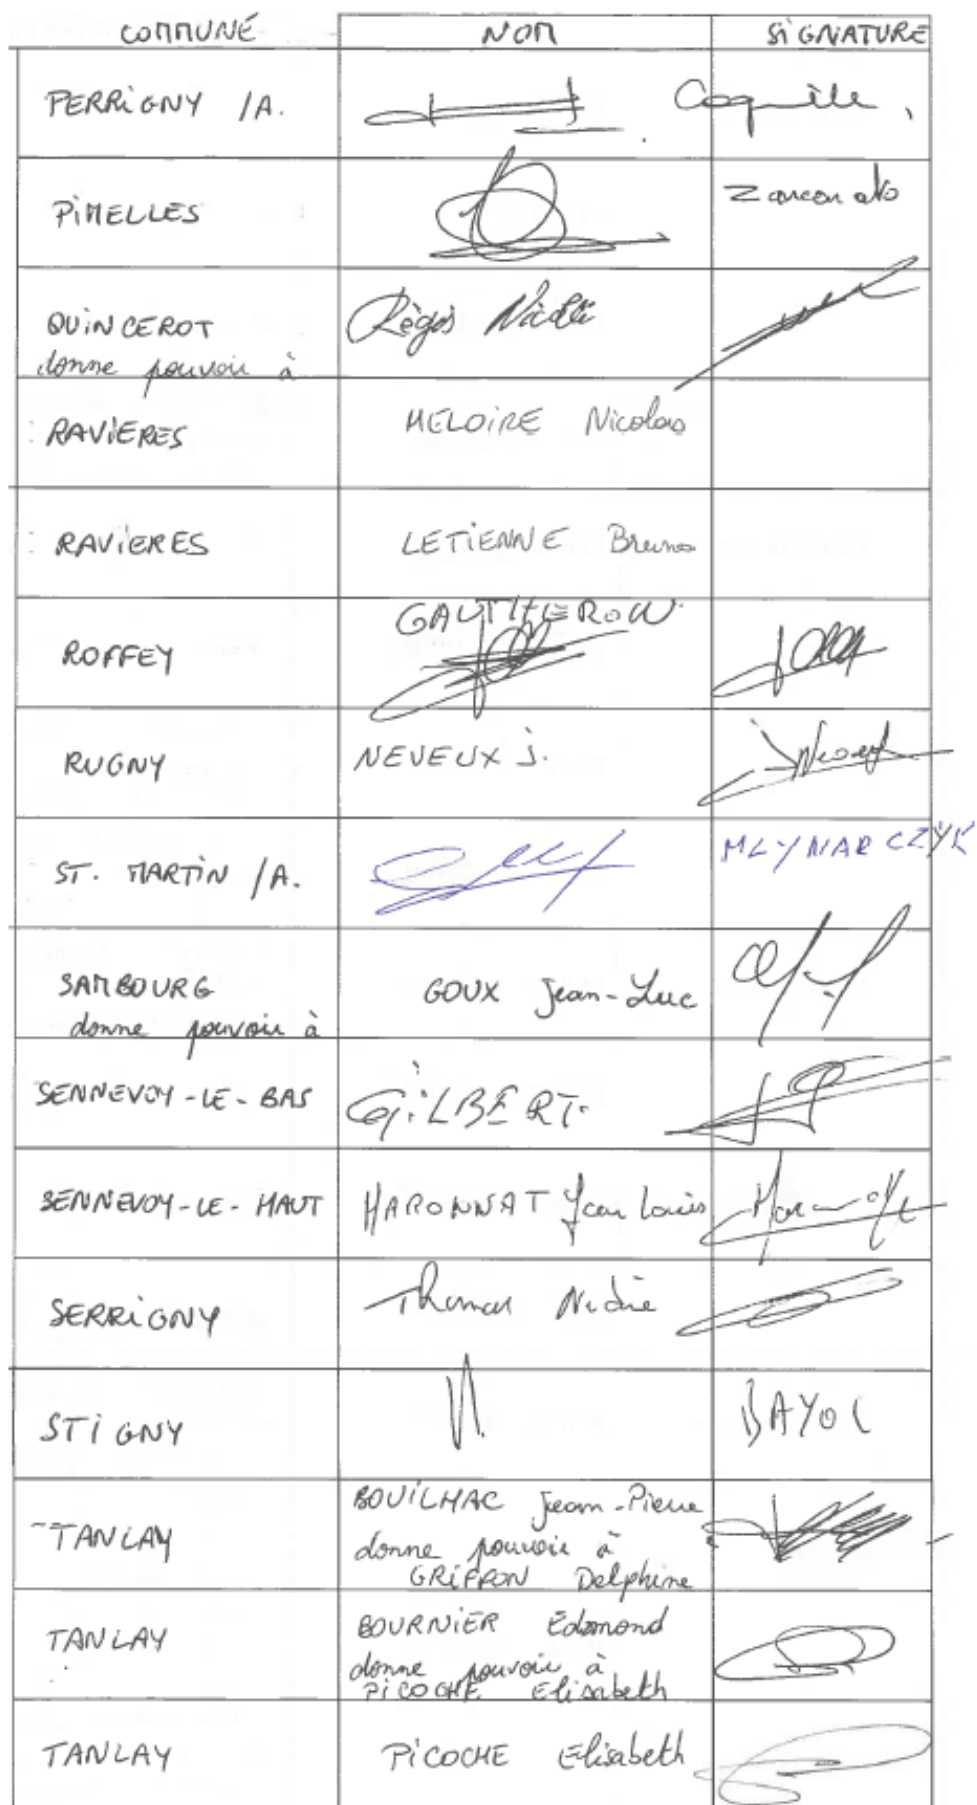 COMMUNÉ NOM SiGNATURE
PERRiGNY /A. Coquille.
PiMELLES Zanconato
QUiNCEROT Règis
donne pouvoir à
RAViERES MELOiRE Nicolas
RAViERES LETiENNE Bruno
GAUTHEROW
ROFFEY
RUGNY NEVEUX J.
ST. MARTiN /A. MLYNARCZYK
SAMBOURG GOUX Jean-Luc
donne pouvoir à
SENNEVOY-LE-BAS GiLBERT.
SENNEVOY-LE-HAUT MARONNAT Jean Louis
SERRiGNY Thomas
STiGNY BAYOL
BOUiLHAC Jean-Pierre
TANLAY donne pouvoir à
GRiFFON Delphine
TANLAY BOURNiER Edmond
donne pouvoir à
PiCOCHE Elisabeth
TANLAY PiCOCHE Elisabeth